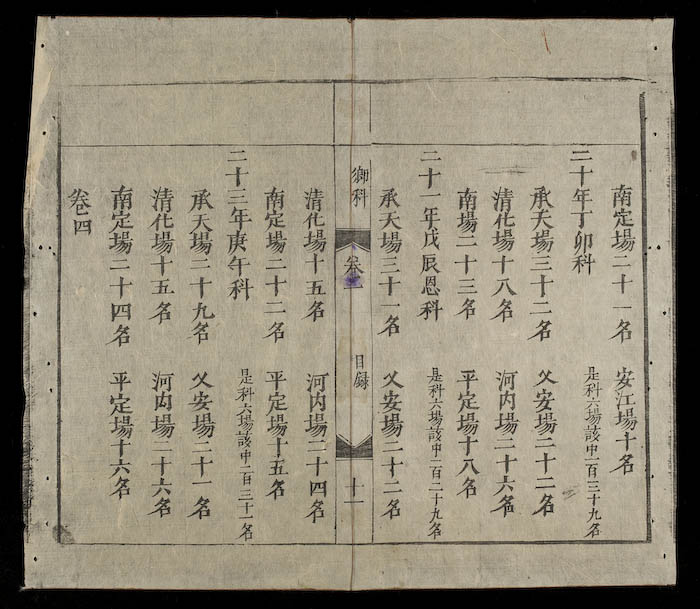 南定場二十一名 安江場十名
二十年丁卯科 是科六場該中一百三十九名
承天場三十二名 乂安場二十二名
清化場十八名 河内場二十六名
南場二十三名 平定場十八名
二十一年戊辰恩科 是科六場該中一百二十九名
承天場三十一名 乂安場二十二名
鄉科 卷一 目録 十一
清化場十五名 河内場二十四名
南定場二十二名 平定場十五名
二十三年庚午科 是科六場該中一百三十一名
承天場二十九名 乂安場二十一名
清化場十五名 河内場二十六名
南定場二十四名 平定場十六名
卷四